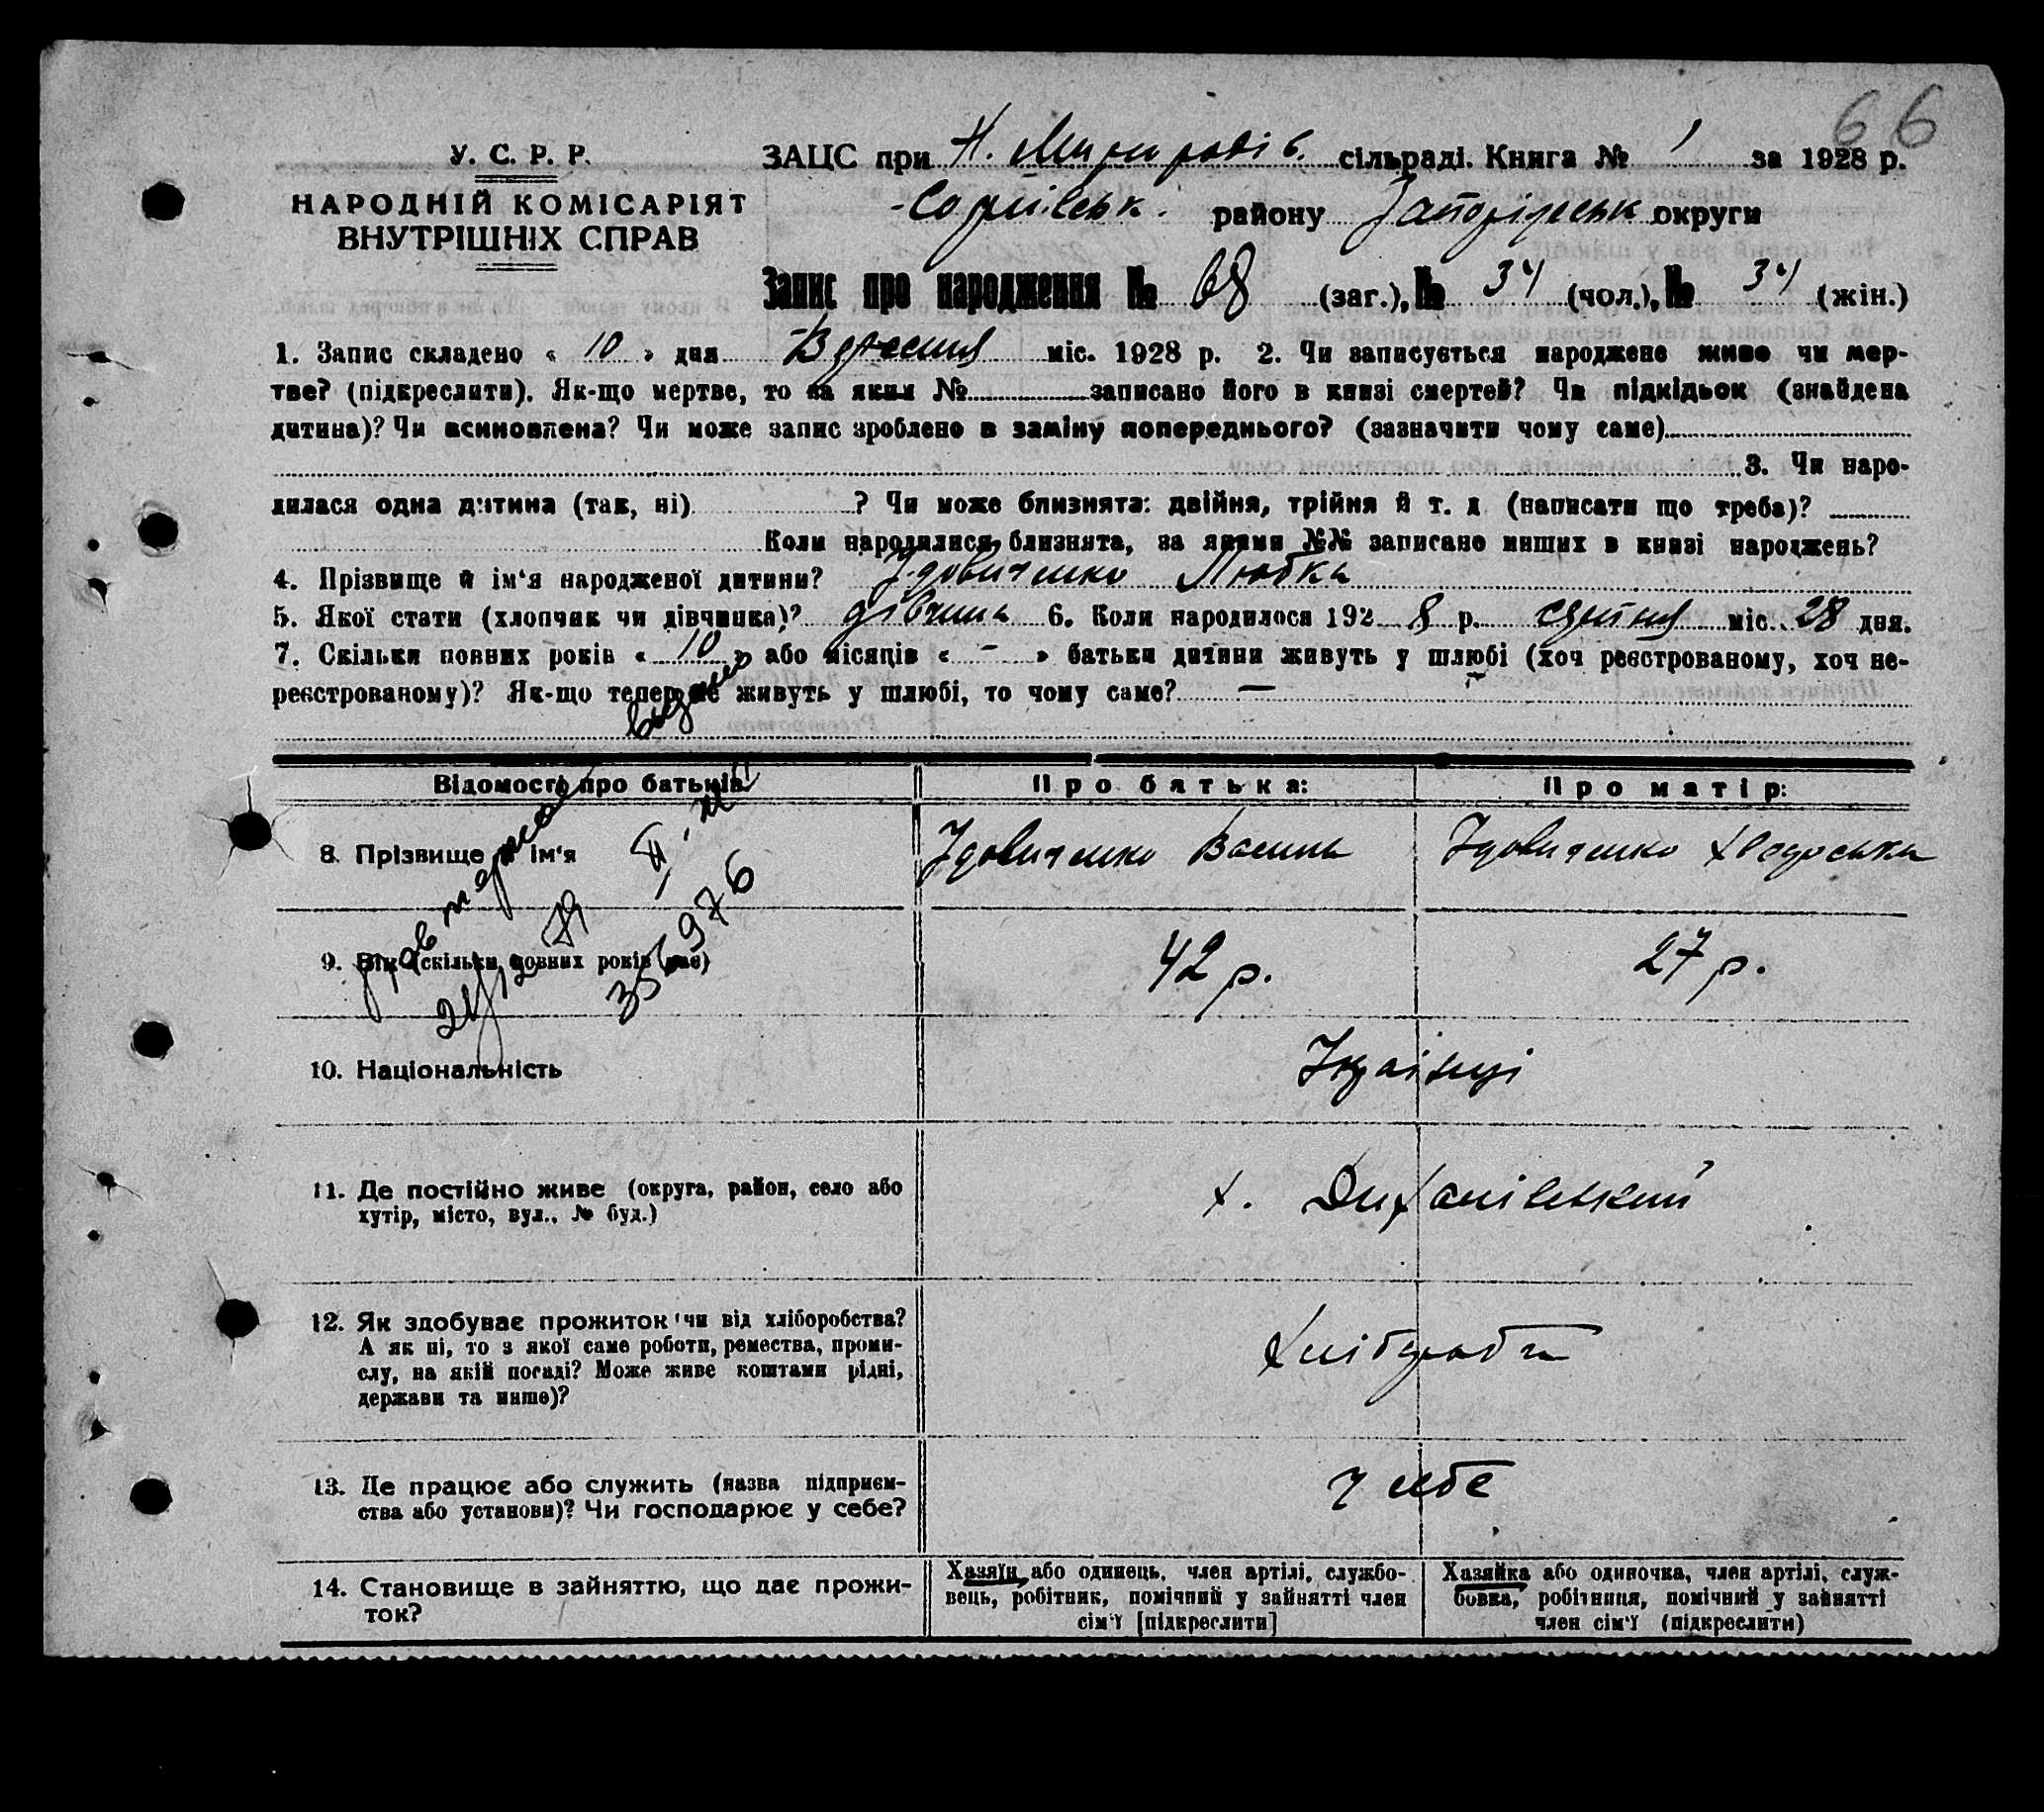 66
У. С. Р. Р.
НАРОДНІЙ КОМІСАРІЯТ
ВНУТРІШНІХ СПРАВ
ЗАЦС при Н. сільраді. Книга № 1 за 1928 р.
району Запорізськ округи
Запис про народження № 68 (заг.), № 34 (чол.), № 34 (жін.)
1. Запис складено « 10 » дня Вересня міс. 1928 р. 2. Чи записується народжене живе чи мер-
тве? (підкреслити). Як-що мертве, то за яким № записано його в книзі смертей? Чи підкідьок (знайдена
дитина)? Чи всиновлена? Чи може запис зроблено в заміну попереднього? (зазначити чому саме)
3. Чи наро-
дилася одна дитина (так, ні) ? Чи може близнята: двійня, трійня й т. д (написати що треба)?
Коли народилися близнята, за якими №№ записано инших в книзі народжень?
4. Прізвище й ім‘я народженої дитини? Здовиченко Любка
5. Якої стати (хлопчик чи дівчинка)? дівчина 6. Коли народилося 1928 р. серпня міс. 28 дня.
7. Скільки повних років « 10 » або місяців « - » батьки дитини живуть у шлюбі (хоч реєстрованому, хоч не-
реєстрованому)? Як-що тепер не живуть у шлюбі, то чому саме? —
Відомості про батьків
Про батька:
Про матір:
8. Прізвище й ім‘я
Здовиченко Василь
Здовиченко Хведоська
9. Вік (скільки повних років має)
42 р.
27 р.
10. Національність
Українці
11. Де постійно живе (округа, район, село або
хутір, місто, вул., № буд.)
х.
12. Як здобуває прожиток чи від хліборобства?
А як ні, то з якої саме роботи, ремества, проми-
слу, на якій посаді? Може живе коштами рідні,
держави та инше)?
Хлібороби
13. Де працює або служить (назва підприєм-
ства або установи)? Чи господарює у себе?
у себе
14. Становище в зайняттю, що дає прожи-
ток?
Хазяїн або одинець, член артілі, службо-
вець, робітник, помічний у зайнятті член
сім‘ї [підкреслити]
Хазяйка або одиночка, член артілі, служ-
бовка, робітниця, помічний у зайнятті
член сім‘ї (підкреслити)